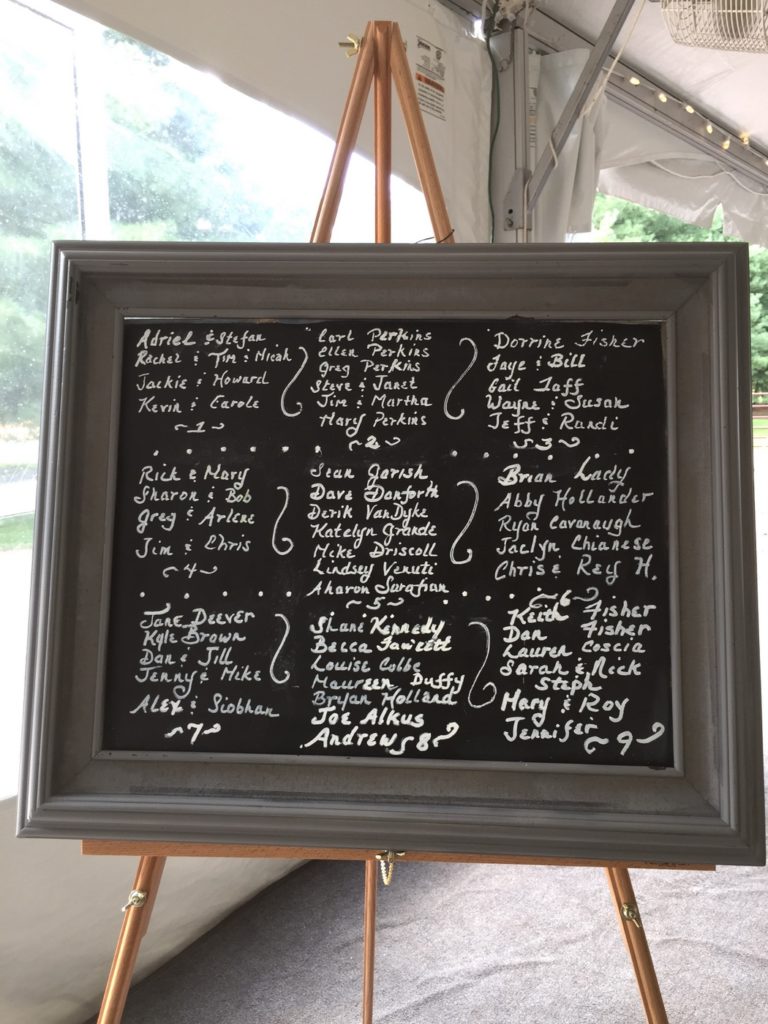 Adriel & Stefan
Rachel & Tim & Micah
Jackie & Howard
Kevin & Carole
~1~
Carl Perkins
Ellen Perkins
Greg Perkins
Steve & Janet
Jim & Martha
Mary Perkins
~2~
Dorrine Fisher
Jaye & Bill
Gail Taff
Wayne & Susan
Jeff & Randi
~3~
Rick & Mary
Sharon & Bob
Greg & Arlene
Jim & Chris
~4~
Sean Garish
Dave Danforth
Derik VanDyke
Katelyn Grande
Mike Driscoll
Lindsey Venuti
Aharon Sarafian
~5~
Brian Lady
Abby Hollander
Ryan Cavanaugh
Jaclyn Chianese
Chris & Rey H.
~6~
Jane Deever
Kyle Brown
Dan & Jill
Jenny & Mike
Alex & Siobhan
~7~
Shane Kennedy
Becca Fawcett
Louise Colbe
Maureen Duffy
Bryan Holland
Joe Alkus
Andrew
~8~
Keith Fisher
Dan Fisher
Lauren Coscia
Sarah & Nick
Steph
Mary & Roy
Jennifer
~9~